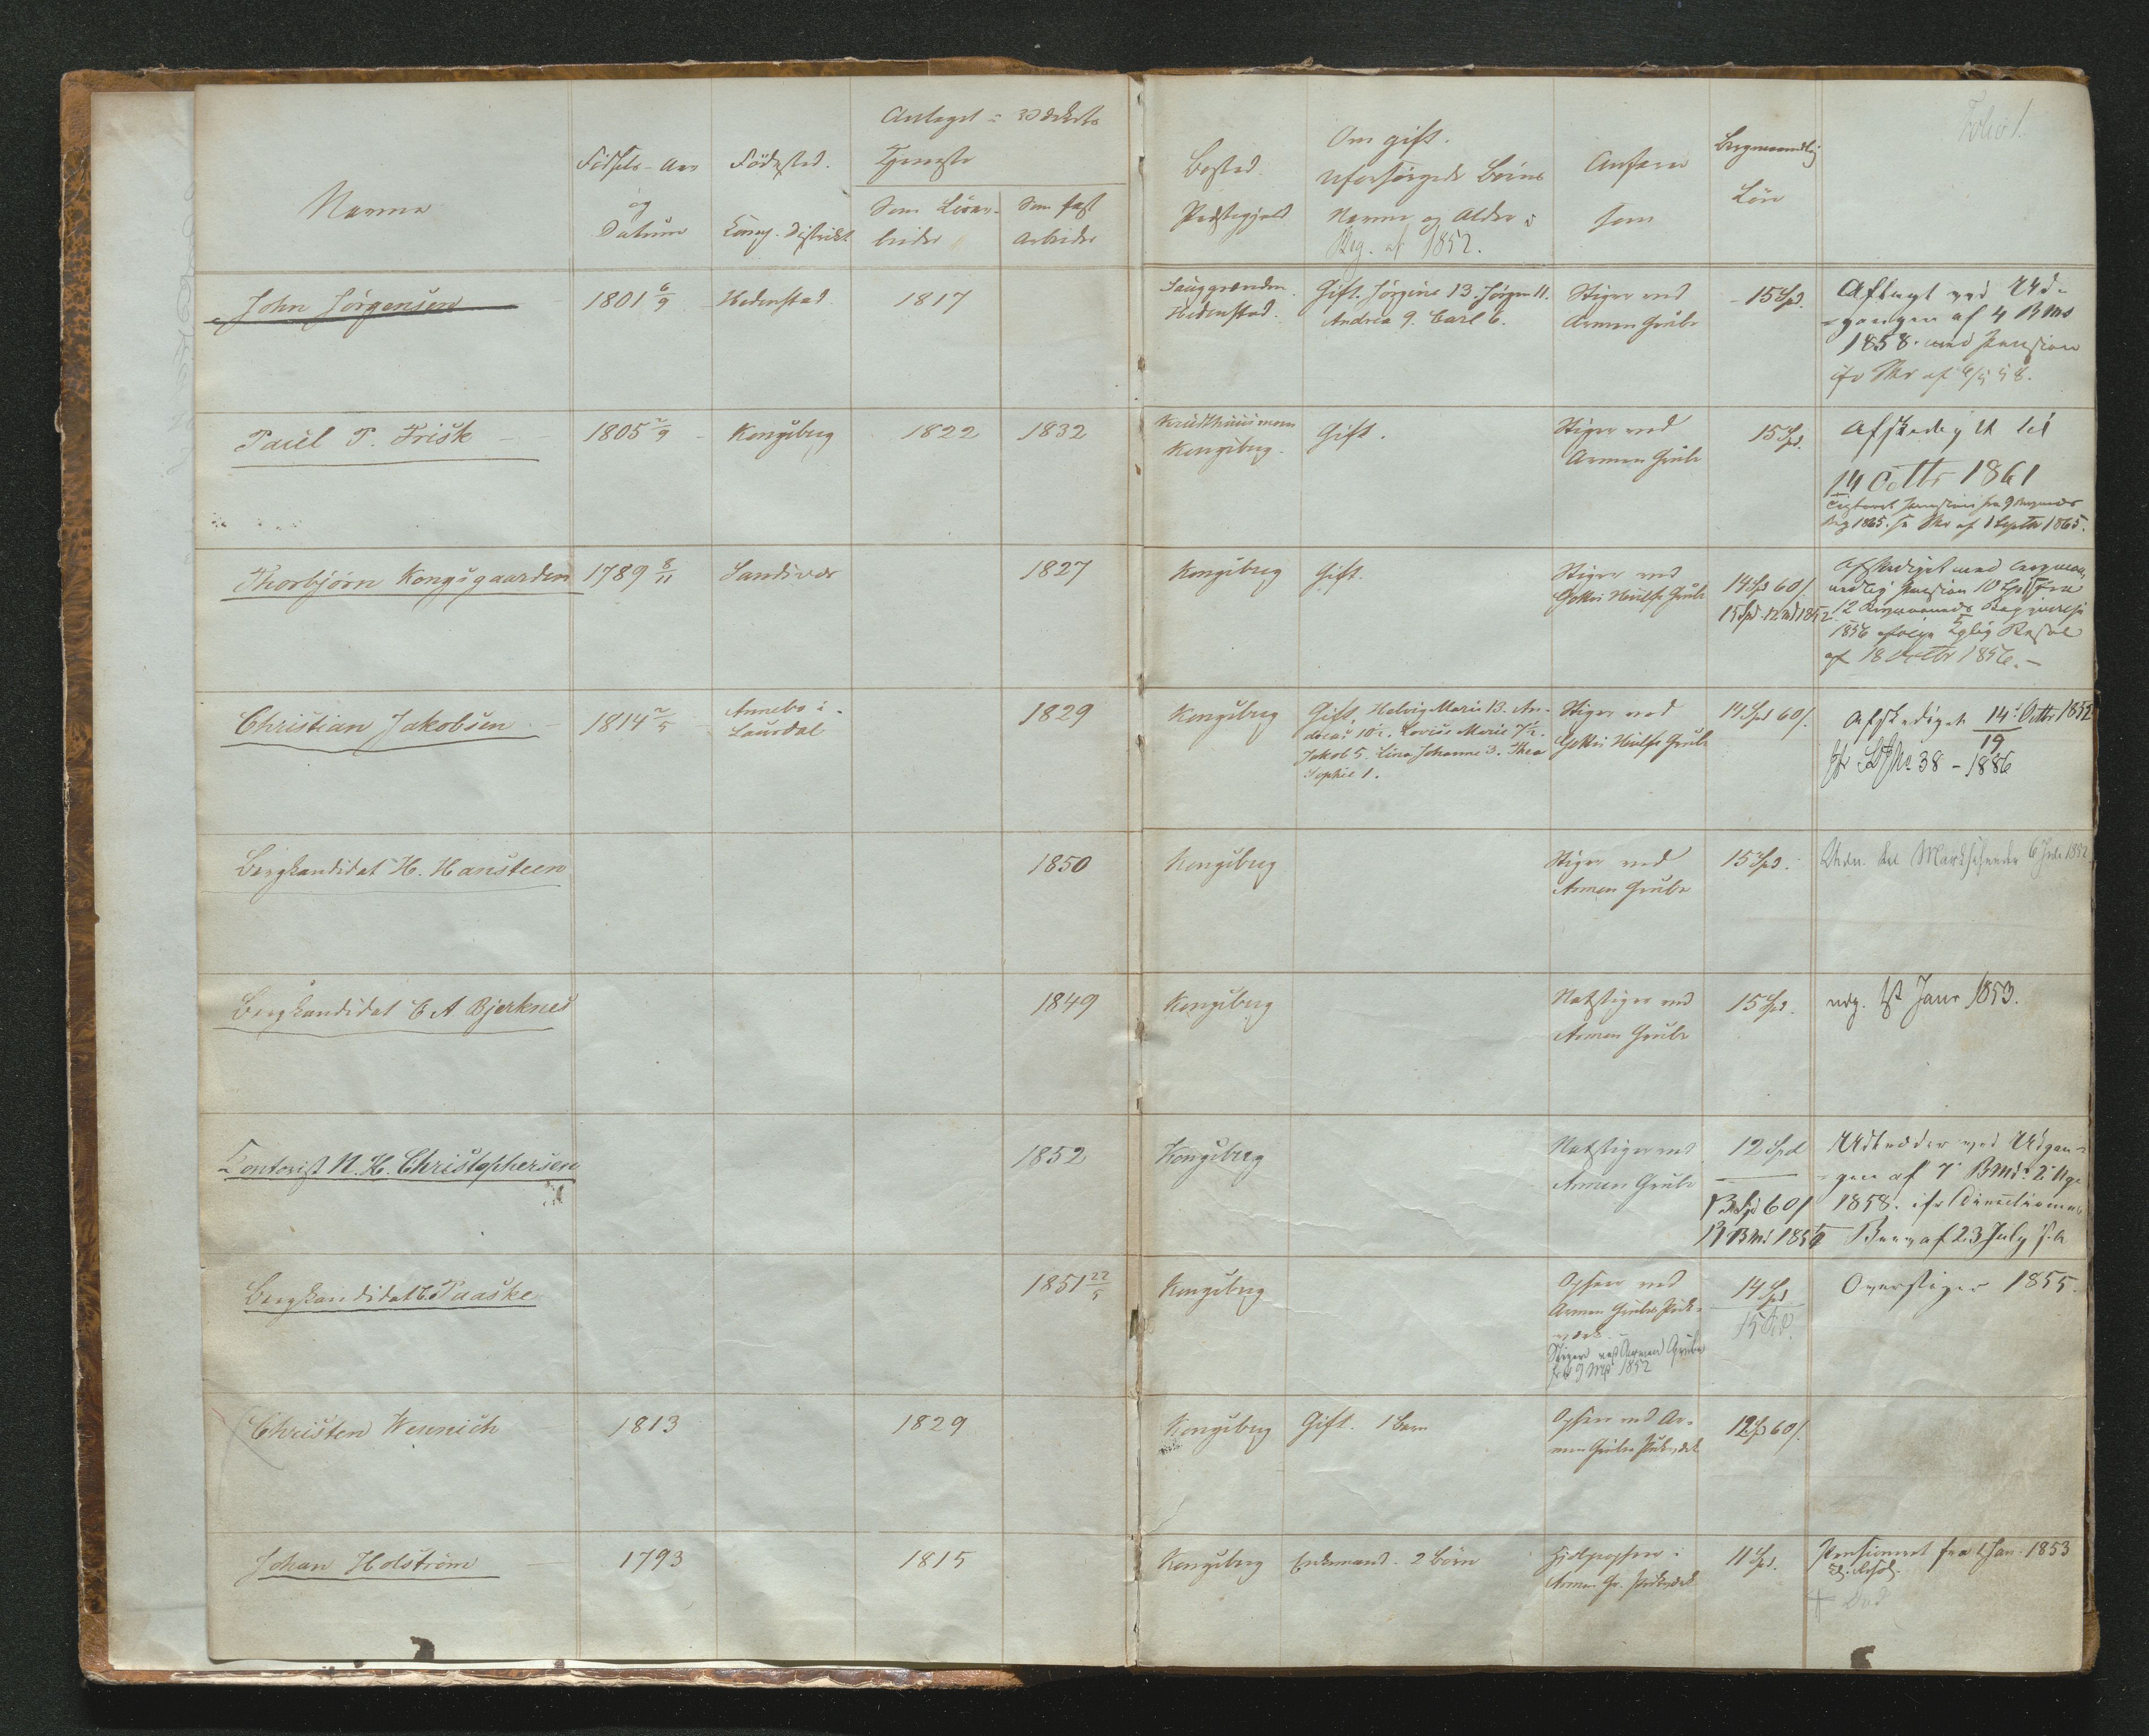 Folio 1.
Navne
Födsels-Aar
og
Datum
Födested.
Antaget i Værkets
Tjeneste
Som Lösar-
beider
Som fast
Arbeider
Bosted.
Præstegjeld
Om gift.
Uforsørgede Börns
Navne og Alder i
Beg. af 1852.
Anføres
som
Bergmaandlig
Lön
John Jörgensen 1801 6/9 Hedenstad 1817
Hedenstad. Gift. Jörgine 13. Jörgen 11.
Andrea 9. Carl 6.
Stiger ved
Armen Grube
15 Spd.
Aftagt ved Ud-
gangen af 4 BMd
1858. med Pension
Paul P. Frisk 1805 2/9 Kongsberg 1822 1832
Kongsberg. Gift.
Stiger ved
Armen Grube
15 Spd.
Afskediget
14 Octbr 1861
1865. 1 Septbr 1865.
Thorbjörn Kongsgaarden 1789 8/11 Sandsvær 1827
Kongsberg Gift.
Stiger ved
Gottes Hülfe Grube
14 Spd 60 /.
15 Spd. 12 Md 1852.
Afskediget med bergmaa-
nedlig Pension 10 Spd fra
12 Bergmaaneds Begyndelse
1856
af 18 Octbr 1856.-
Christian Jakobsen 1814 2/5 Annebo i
Laurdal
1829
Kongsberg Gift. Helvig Marie 13. An-
dreas 10 1/2. Lovise Marie 7 1/2.
Jakob 5. Lina Johanne 3. Thea
Sophie 1.
Stiger ved
Gottes Hülfe Grube
14 Spd 60 /.
Afskediget 14 Octbr 1852
19
38 - 1886
Bergkandidat H. Hansteen 1850
Kongsberg
Stiger ved
Armen Grube
15 Spd.
Markscheider 1852
Bergkandidat C A Bjerknes 1849
Kongsberg
Natstiger ved
Armen Grube
15 Spd.
1st Janr 1853.
Contorist N. H. Christophersen 1852
Kongsberg
Natstiger ved
Armen Grube
12 Spd
13 Spd 60 /
Udtræder ved Udgan-
gen af 7 BMd 2 Uge
1858.
af 23 July
Bergkandidat C. Paaske 1851 22/5
Kongsberg
Opseer ved
Armen Grubes Puk-
værk.
Stiger ved Armen Grube
fra 9 Md 1852
14 Spd
15 Spd.
Overstiger 1855.
Christen Wennich 1813 1829
Kongsberg Gift. 1 Barn
Opseer ved Ar-
men Grubes Pukværk
12 Spd 60 /.
Johan Holström 1793 1815
Kongsberg Enkemand. 2 Börn
Hjelpopseer i
Armen Gr. Pukværk
11 Spd.
Pensioneret fra 1 Jan. 1853
Död